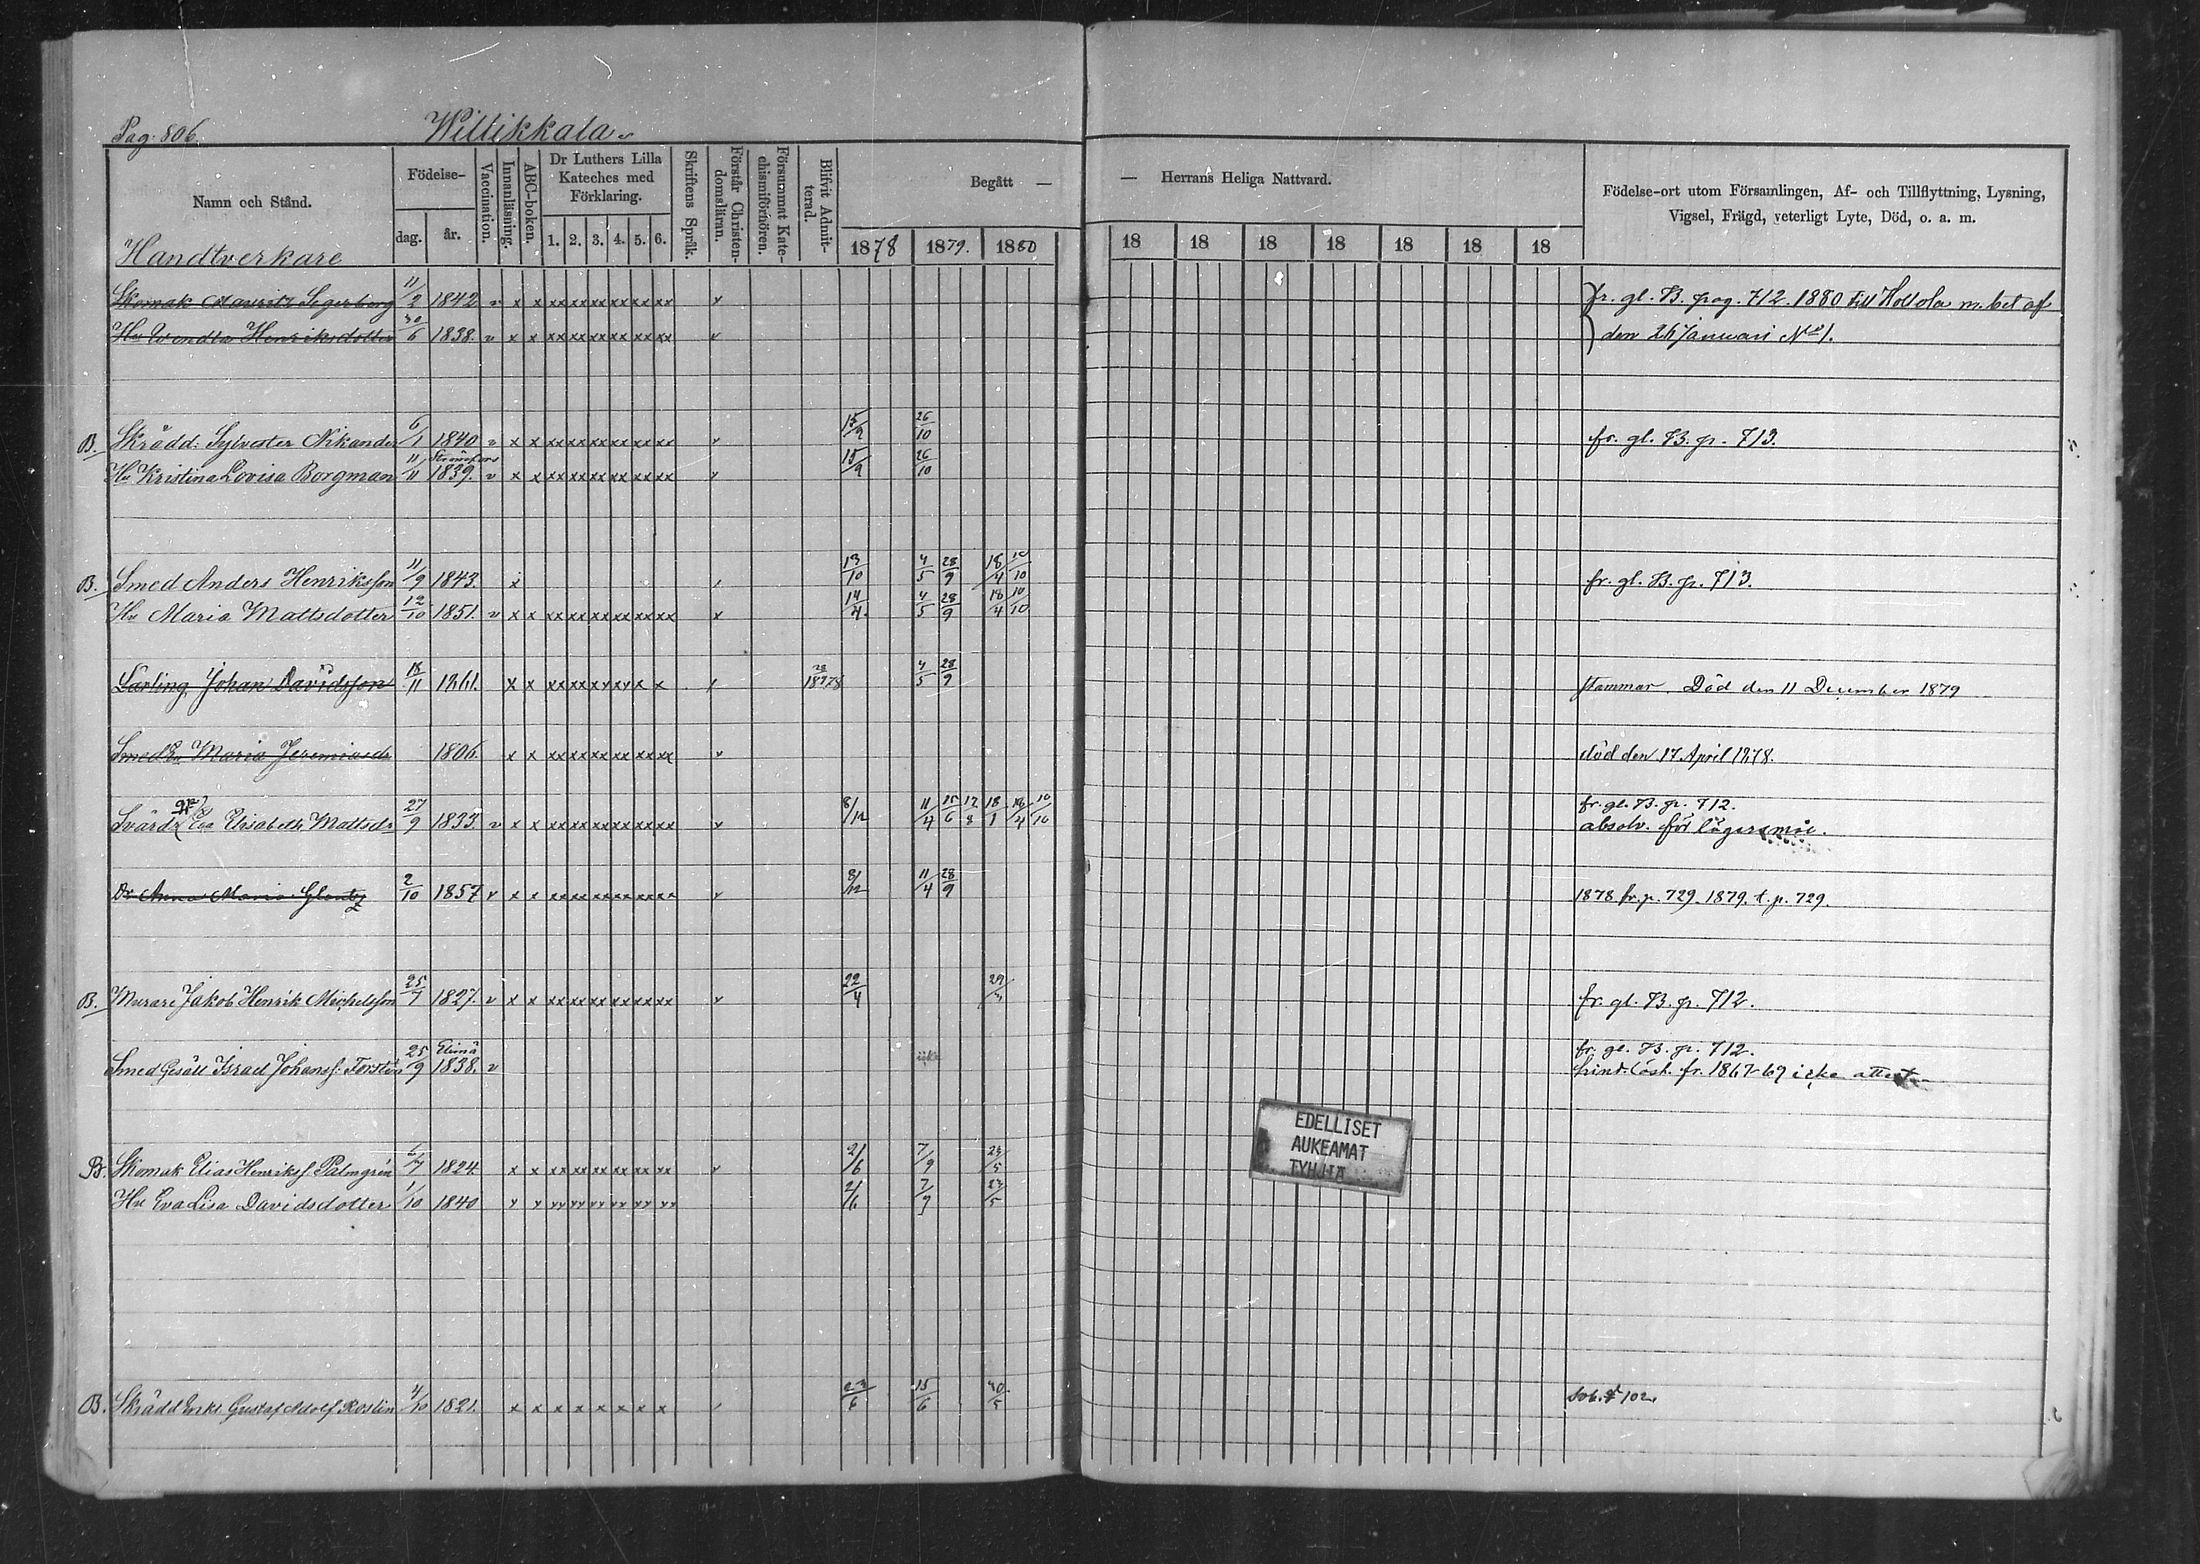 Pag. 806. Wiltikkala
Namn och Stånd. Födelse- dag. år. Vaccination. Innanläsning. ABC-boken. Dr Luthers Lilla Kateches med Förklaring. 1. 2. 3. 4. 5. 6. Skriftens Språk. Förstår Christendomsläran. Försummat Katechismiförhören. Blifvit Admitterad. Begått — — Herrans Heliga Nattvard. Födelse-ort utom Församlingen, Af- och Tillflyttning, Lysning, Vigsel, Frägd, veterligt Lyte, Död, o. a. m.
1878 1879. 1880 18 18 18 18 18 18 18
Handtverkare
Skomak Mauritz Segerberg 11/2 1842 v x x xx xx xx xx xx xx v fr. gl. B. pag. 712. 1880 till Hollola m. bet af
Hu Wendla Henriksdotter 30/6 1838. v x x xx xx xx xx xx xx v den 26 Januari No 1.
B. Skrädd. Sylvester Nikander 6/1 1840 v x x xx xx xx xx xx xx v 15/9 26/10 fr. gl. B. p. 713.
Hu Kristina Lovisa Borgman 11/11 Strömfors 1839. v x x xx xx xx xx xx xx v 15/9 26/10
B. Smed Anders Henriksson 11/9 1843. x 13/10 4/5 28/9 18/4 10/10 fr. gl. B. p. 713.
Hu Maria Mattsdotter 12/10 1851. v x x xx xx xx xx xx xx v 14/4 4/5 28/9 18/4 10/10
Lärling Johan Davidsson 18/11 1861. x x xx xx xx xx x x 1878 4/5 28/9 stammar. Död den 11 December 1879
Smed Maria Jeremiasdr 1806. x x xx xx xx xx xx xx v död den 17 April 1878.
Eva Elisabeth Mattsdr 27/9 1833. v x x xx xx xx xx xx xx v 8/12 11/4 15/6 18/1 18/4 10/10 fr. gl. B. p. 712.
absolv. för lägersmål.
Dr Anna Maria 2/10 1857 v x x xx xx xx xx xx xx v 8/12 11/4 28/9 1878 fr. p. 729. 1879. t. p. 729.
B. Murare Jakob Henrik Michelsson 25/7 1827. v x x xx xx xx xx xx xx v 22/4 fr. gl. B. p. 712.
Smed Gesäll Israel Johanss. Forstén 25/9 Elimä 1838. v fr. gl. B. p. 712.
fr. 1867-69 icke attest
B. Skomak Elias Henrikss. Palmgrén 6/7 1824. x x xx xx xx xx xx xx v 21/6 7/9 23/5
Hu Eva Lisa Davidsdotter 1/10 1840 v v vv vv vv vv vv vv 21/6 7/9 23/5
EDELLISET
AUKEAMAT
TYHJIÄ
B. Skrädd Enkl. Gustaf Adolf Roslin 4/10 1821. x x x x x x x x 23/6 15/6 30/5 Sob. 102.